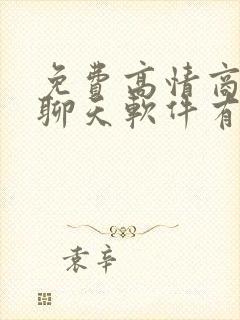 免费高情商
聊天软件有
袁辛